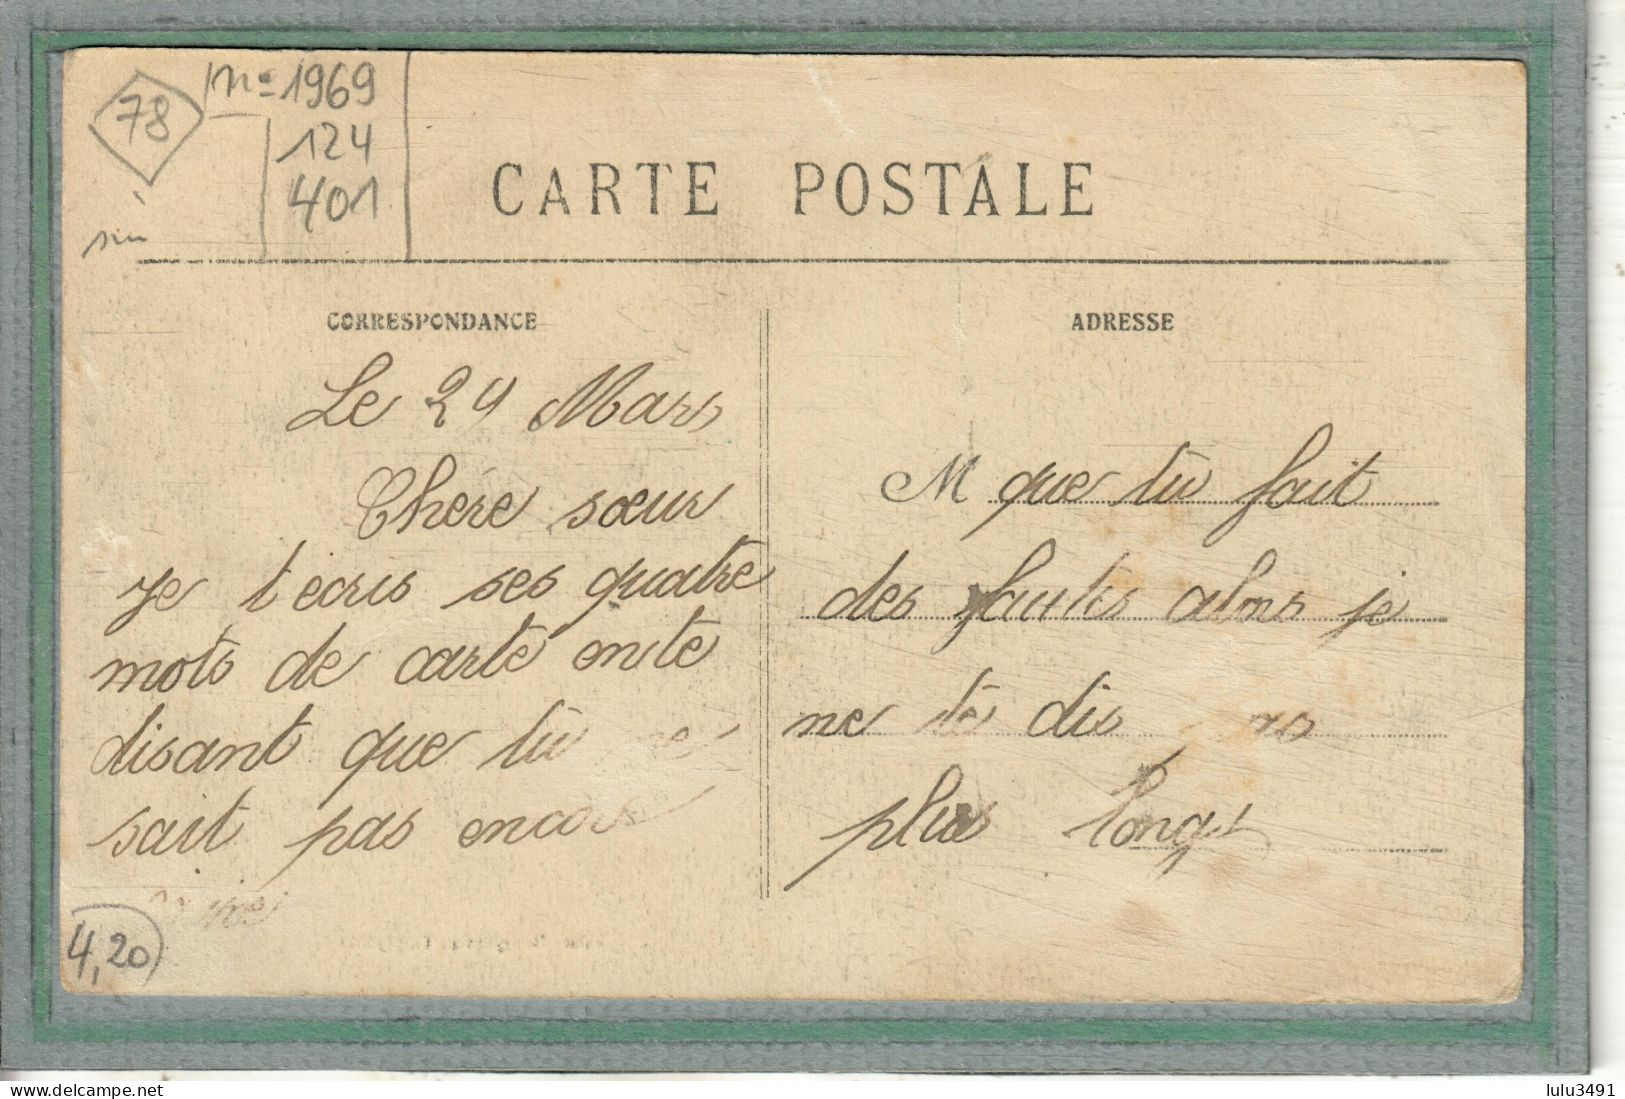 78
n° 1969
124
401
CARTE POSTALE
CORRESPONDANCE
Le 29 Mars
Chére sœur
je t ecris ses quatre
mots de carte en te
disant que tu
sait pas encore
4,20
ADRESSE
M que tu fait
des fautes alors je
ne te dis pas
plus longs
lulu3491